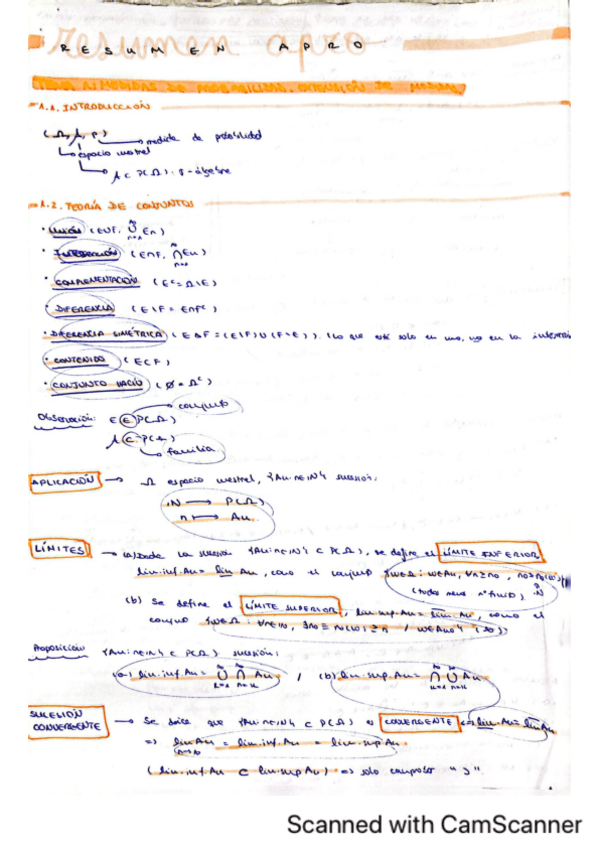 RESUMEN APRO
TEMA 1: MEDIDAS DE PROBABILIDAD. EXTENSIÓN DE MEDIDAS
1.1. INTRODUCCIÓN
(Ω, A, P) → medida de probabilidad
→ espacio muestral
→ A ⊂ P(Ω): σ-álgebra
1.2. TEORÍA DE CONJUNTOS
· UNIÓN (E∪F, ∪ En)
· INTERSECCIÓN (E∩F, ∩ En)
· COMPLEMENTACIÓN (Eᶜ = Ω\E)
· DIFERENCIA (E\F = E∩Fᶜ)
· DIFERENCIA SIMÉTRICA (E Δ F = (E\F)∪(F\E)). (Lo que está solo en uno, no en la intersecci
· CONTENIDO (E⊂F)
· CONJUNTO VACÍO (Ø = Ωᶜ)
Observación: E ∈ P(Ω) → conjunto
A ⊂ P(Ω) → familia
APLICACIÓN → Ω espacio muestral, {An: n∈ℕ} sucesión:
ℕ → P(Ω)
n ↦ An
LÍMITES → (a) Dada la sucesión {An: n∈ℕ} ⊂ P(Ω), se define el LÍMITE INFERIOR
lim.inf. An = lim An, como el conjunto {w∈Ω: w∈An, ∀n≥n0, n0=n0(w)}
(todos menos nº finito)
(b) Se define el LÍMITE SUPERIOR, lim.sup. An = lim. An, como el
conjunto {w∈Ω: ∀n∈ℕ, ∃n0 = n0(w) ≥ n / w∈An0}
Proposición {An: n∈ℕ} ⊂ P(Ω) sucesión:
(a) lim.inf. An = ∪ ∩ An / (b) lim.sup. An = ∩ ∪ An
SUCESIÓN CONVERGENTE → Se dice que {An: n∈ℕ} ⊂ P(Ω) es CONVERGENTE ⇔ lim. An = lim An
⇒ lim An = lim.inf. An = lim.sup An.
(lim.inf An ⊂ lim sup An) ⇒ solo comprobar "⊃".
Scanned with CamScanner